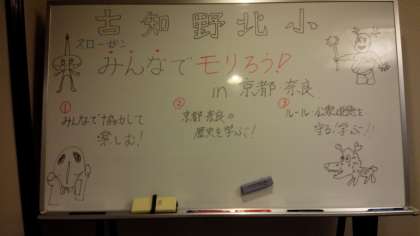 古知野北小
スローガン
みんなでモリろう!
in 京都・奈良
① みんなで協力して
楽しむ!
② 京都・奈良の
歴史を学ぶ!
③ ルール・公衆道徳を
守る!学ぶ!